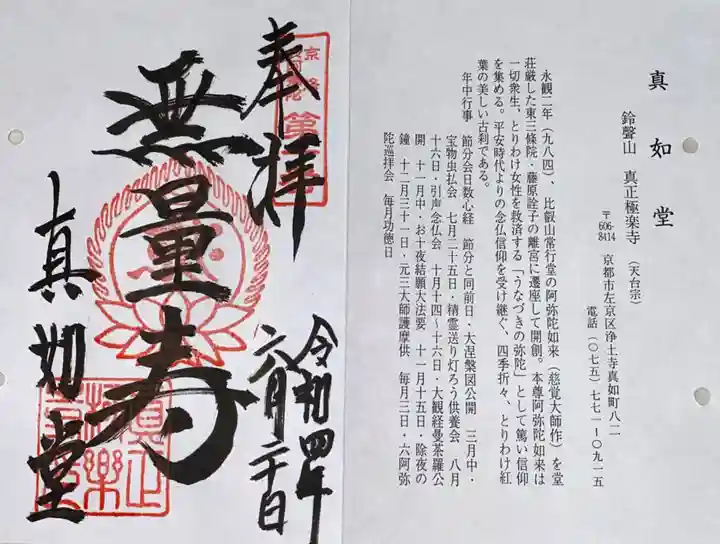 真如堂
鈴聲山 真正極楽寺 (天台宗)
〒606-8414 京都市左京区浄土寺真如町八二
電話 (〇七五) 七七一〜〇九一五
永観二年 (九八四)、比叡山常行堂の阿弥陀如来 (慈覚大師作) を堂
荘厳した東三條院・藤原詮子の離宮に遷座して開創。本尊阿弥陀如来は
一切衆生、とりわけ女性を救済する「うなづきの弥陀」として篤い信仰
を集める。平安時代よりの念仏信仰を受け継ぐ、四季折々、とりわけ紅
葉の美しい古刹である。
年中行事 節分会日数心経 節分と同前日・大涅槃図公開 三月中・
宝物虫払会 七月二十五日・精霊送り灯ろう供養会 八月
十六日・引声念仏会 十月十四〜十六日・大観経曼荼羅公
開 十一月中・お十夜結願大法要 十一月十五日・除夜の
鐘 十二月三十一日・元三大師護摩供 毎月三日・六阿弥
陀巡拝会 毎月功徳日
奉拝
無量寿
真如堂
令和四年
六月二十日
真正極樂